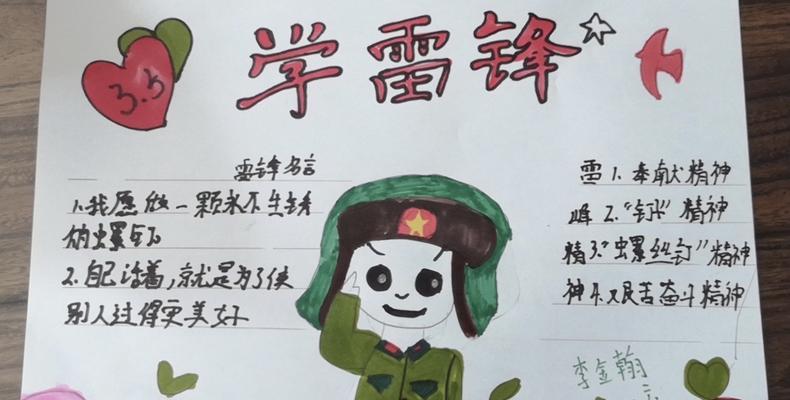 学雷锋
3.5
雷锋名言
1.我愿做一颗永不生锈
的螺钉
2.自己活着,就是为了使
别人过得更美好
雷 1. 奉献精神
峰 2."钉子"精神
精 3."螺丝钉"精神
神 4.艰苦奋斗精神
李金翰